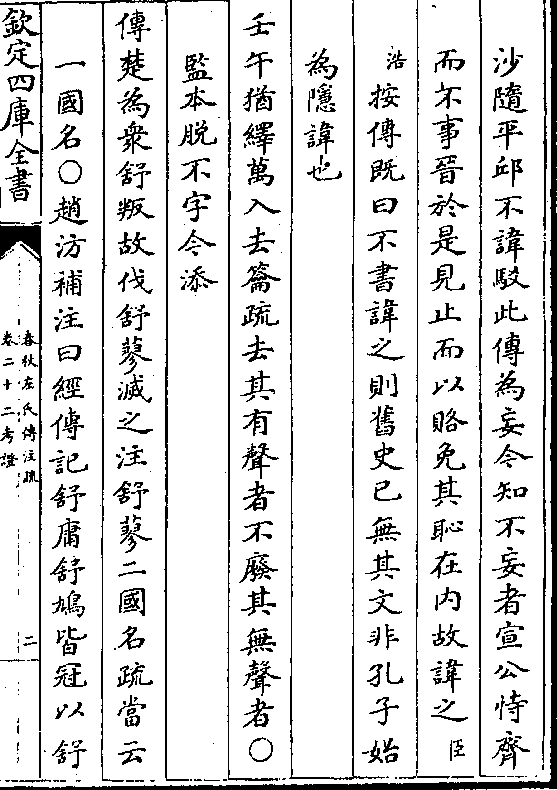 沙隨平邱不諱駁此傳為妄今知不妄者宣公恃齊
而不事晉於是見止而以賂免其恥在内故諱之臣
浩按傳既曰不書諱之則舊史已無其文非孔子始
為隱諱也
壬午猶繹萬入去籥疏去其有聲者不廢其無聲者〇
監本脱不字今添
傳楚為衆舒叛故伐舒蓼滅之注舒蓼二國名疏當云
一國名〇趙汸補注曰經傳記舒庸舒鳩皆冠以舒
欽定四庫全書
春秋左氏傳注疏
卷二十二考證
二